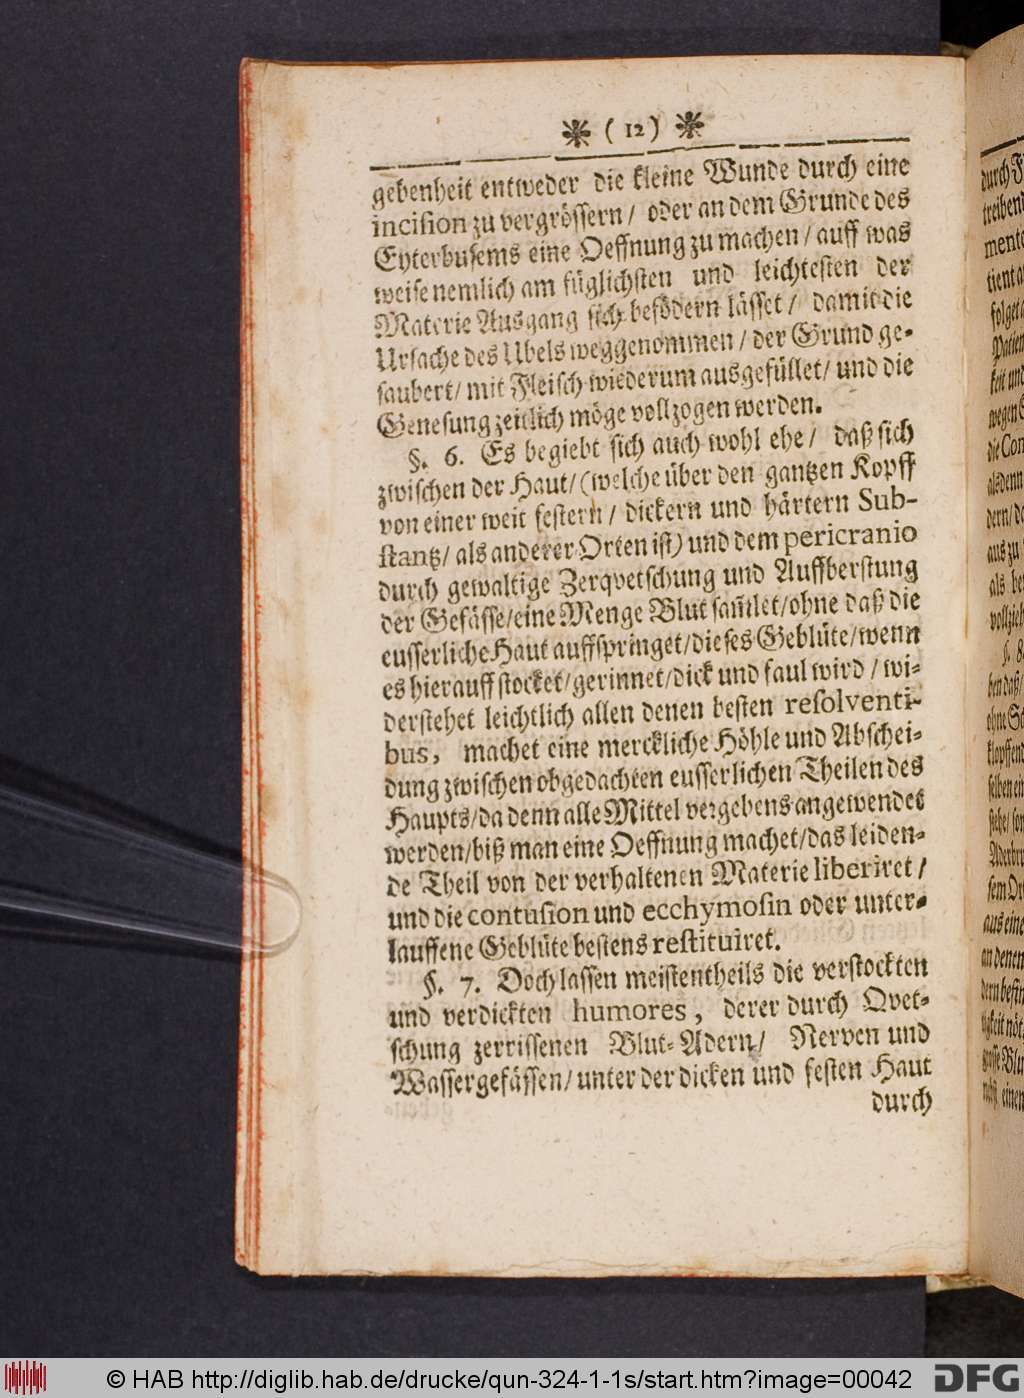 ❋ ( 12 ) ❋
gebenheit entweder die kleine Wunde durch eine
incision zu vergrössern / oder an dem Grunde des
Eyterbusems eine Oeffnung zu machen / auff was
weise nemlich am füglichsten und leichtesten der
Materie Ausgang sich befödern lässet / damit die
Ursache des Ubels weggenommen / der Grund ge-
saubert / mit Fleisch wiederum ausgefüllet / und die
Genesung zeitlich möge vollzogen werden.
§. 6. Es begiebt sich auch wohl ehe / daß sich
zwischen der Haut / (welche über den gantzen Kopff
von einer weit festern / dickern und härtern Sub-
stantz / als anderer Orten ist) und dem pericranio
durch gewaltige Zerqvetschung und Auffberstung
der Gefässe / eine Menge Blut sam̃let / ohne daß die
eusserliche Haut auffspringet / dieses Geblüte / wenn
es hierauff stocket / gerinnet / dick und faul wird / wi-
derstehet leichtlich allen denen besten resolventi-
bus, machet eine merckliche Höhle und Abschei-
dung zwischen obgedachten eusserlichen Theilen des
Haupts / da denn alle Mittel vergebens angewendet
werden / biß man eine Oeffnung machet / das leiden-
de Theil von der verhaltenen Materie liberiret /
und die contusion und ecchymosin oder unter-
lauffene Geblüte bestens restituiret.
§. 7. Doch lassen meistentheils die verstockten
und verdickten humores, derer durch Qvet-
schung zerrissenen Blut-Adern / Nerven und
Wassergefässen / unter der dicken und festen Haut
durch
durch
treibend
mente
tient
folget
Patien
keit und
wegen
die Con
alsdenn
dern /
aus zu
als be
vollzieh
§. 8
ben daß /
ohne
klopffend
selben ein
Aderbr
aus eine
an denen
© HAB http://diglib.hab.de/drucke/qun-324-1-1s/start.htm?image=00042
DFG